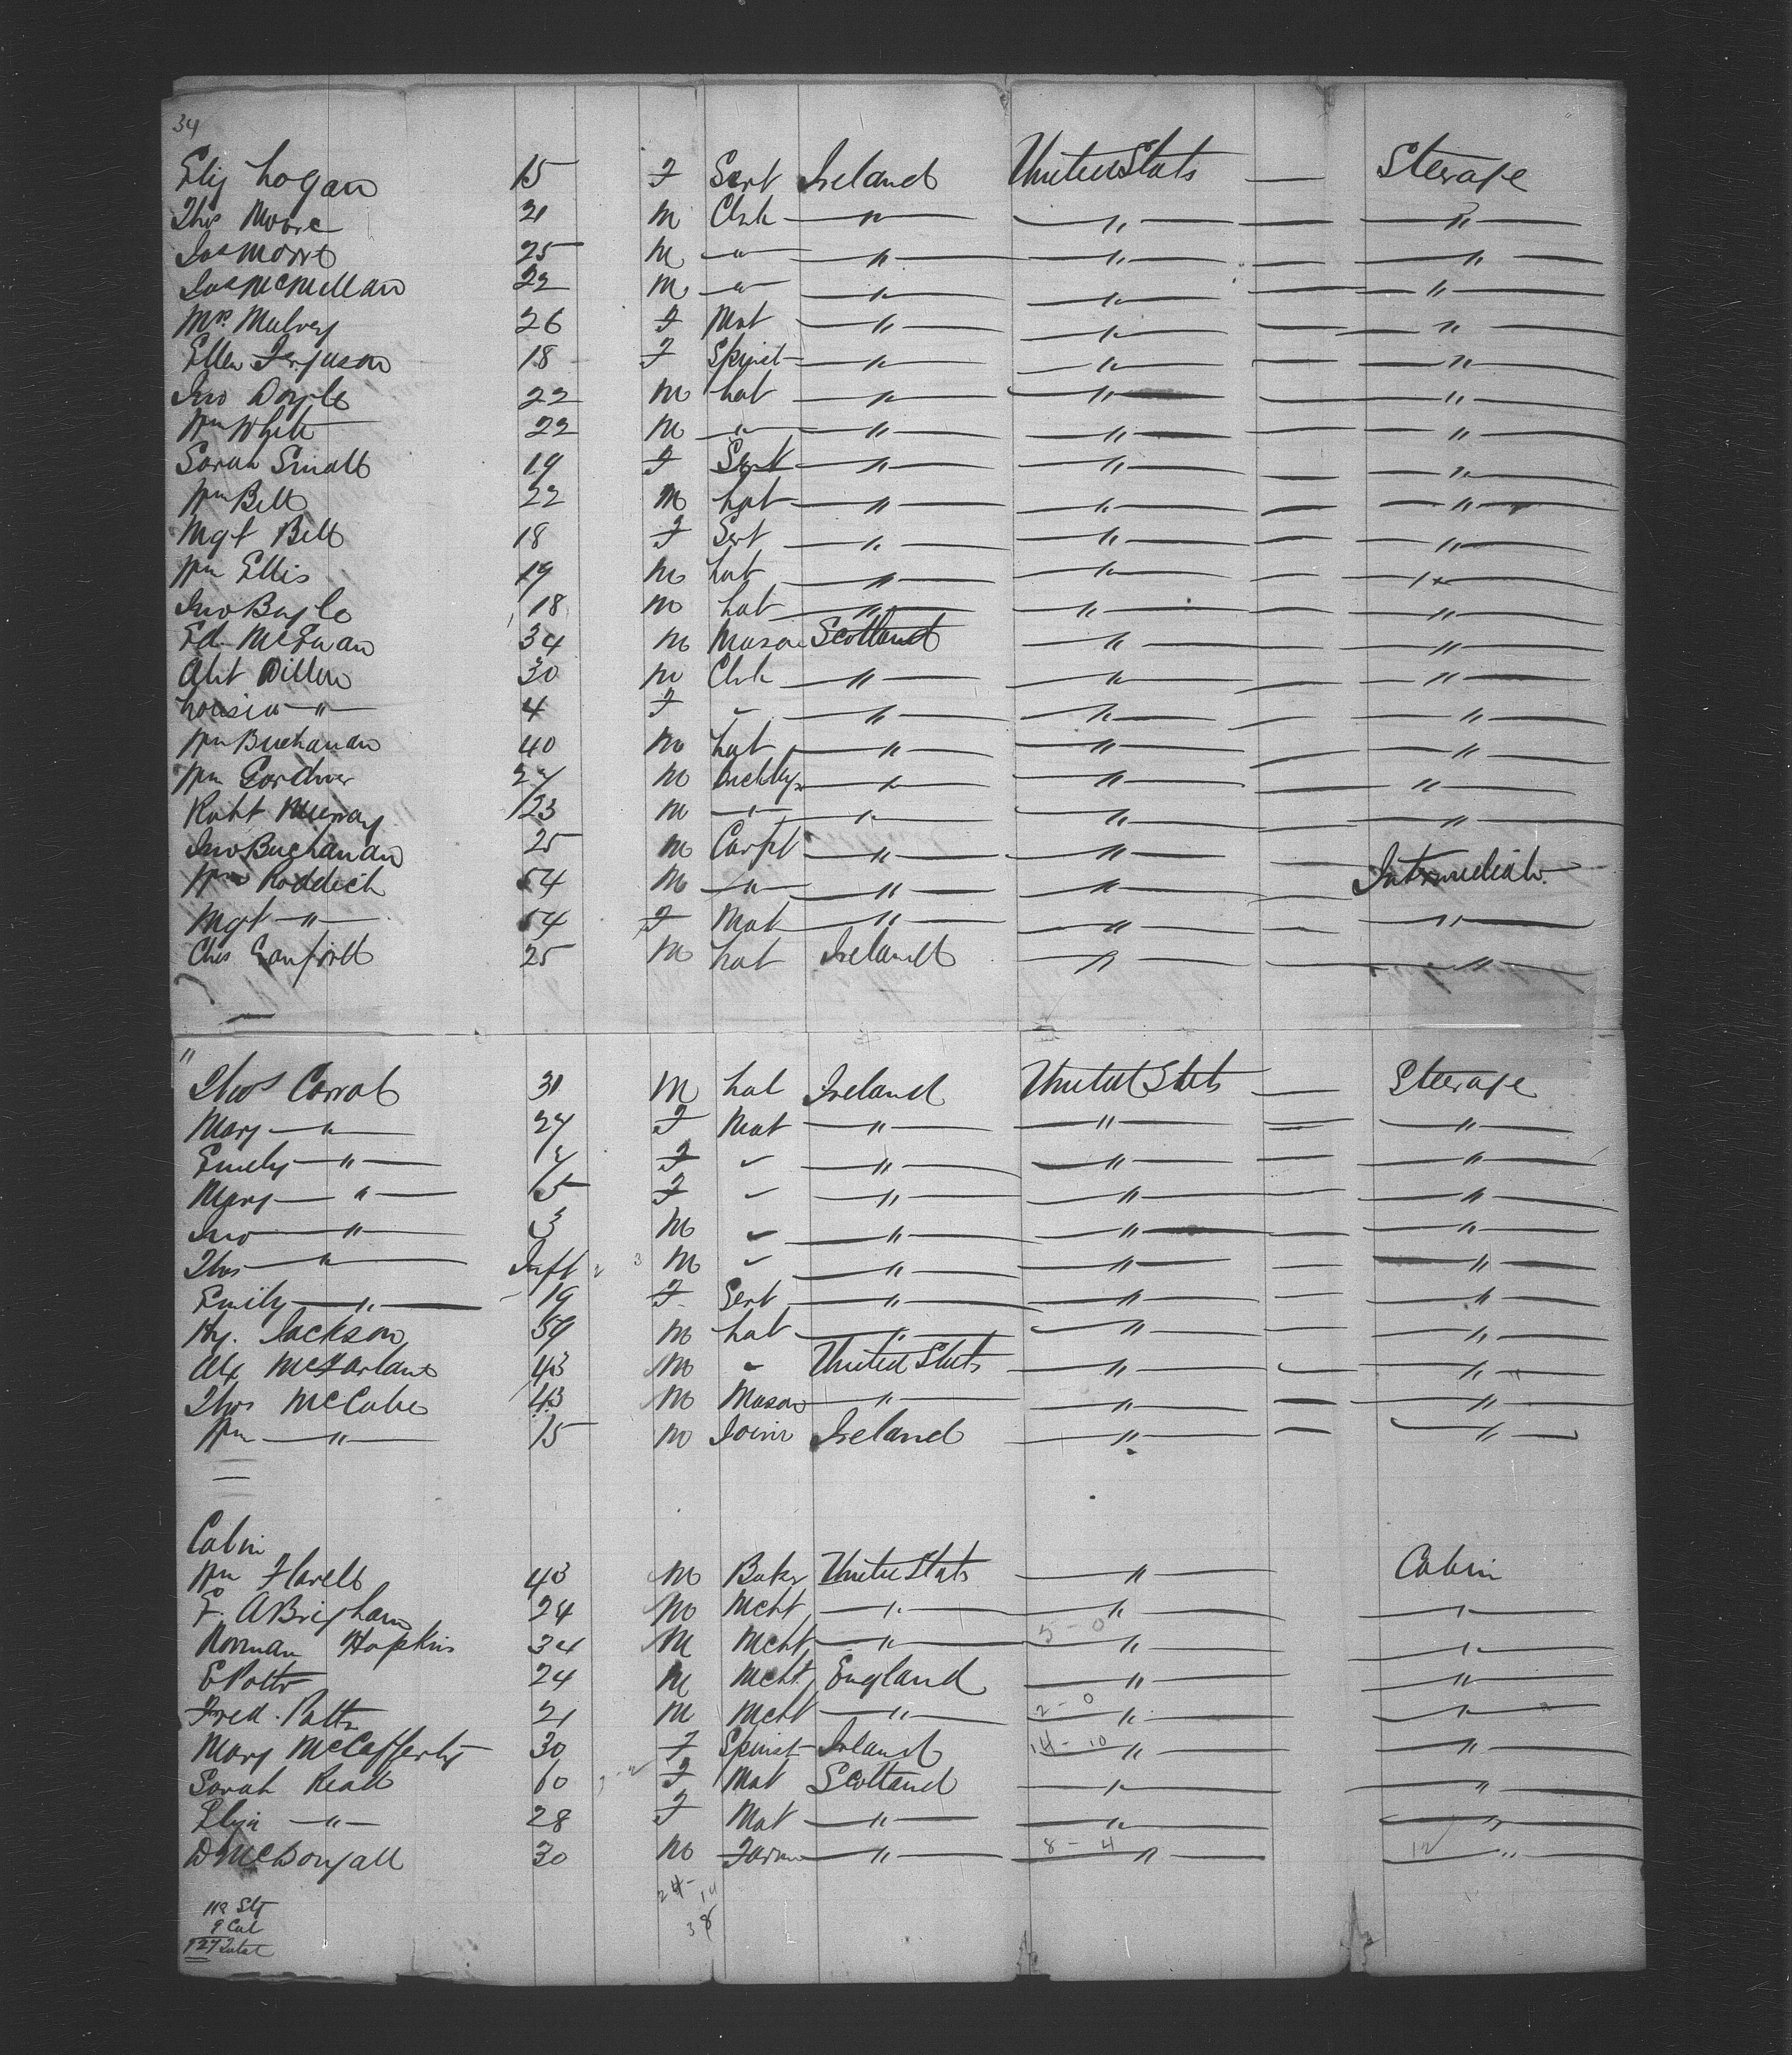 34
Eliz Logan 15 F Sert Ireland United Stats — Steerage
Thos Moore 21 M Clrk — " — — " — — — " —
Jas Morro 25 M — " — — " — — " — — — " —
Jas McMillan 22 M — " — — " — — " — — — " —
Mrs Mulvey 26 F Mat — " — — " — — — " —
Ellen Ferguson 18 F Spinst — " — — " — — — " —
Jno Doyle 22 M Lab — " — — " — — — " —
Wm White 22 M — " — — " — — " — — — " —
Sarah Small 19 F Sert — " — — " — — — " —
Wm Bell 22 M Lab — " — — " — — — " —
Mgt Bell 18 F Sert — " — — " — — — " —
Wm Ellis 19 M Lab — " — — " — — — " —
Jno Boyle 18 M Lab — " — — " — — — " —
Ed. McEwan 34 M Mason Scotland — " — — — " —
Abt Dillon 30 M Clrk — " — — " — — — " —
Louisa — " — 4 F " — " — — " — — — " —
Wm Buchanan 40 M Lab — " — — " — — — " —
Wm Gardner 27 M — " — — " — — — " —
Robt Murray 23 M — " — — " — — " — — — " —
Jno Buchanan 25 M Carpt — " — — " — —
Wm Roddick 54 M — " — — " — — " — — Intermediate
Mgt — " — 54 F Mat — " — — " — — — " —
Chas 25 M Lab Ireland — " — — — " —
" Thos Carrol 31 M Lab Ireland United Stats — Steerage
Mary — " — 27 F Mat — " — — " — — — " —
Emely — " — F " — " — — " — — — " —
Mary — " — 5 F " — " — — " — — — " —
Jno — " — 3 M " — " — — " — — — " —
Thos — " — Inft M " — " — — " — — — " —
Emily — " — 19 F Sert — " — — " — — — " —
Hy. Jackson 59 M Lab — " — — " — — — " —
Alex McFarland 43 M " United Stats — " — — — " —
Thos McCabe 43 M Mason — " — — " — — — " —
Wm — " — 15 M Joinr Ireland — " — — — " —
Cabin
Wm Flarell 43 M Baker United Stats — " — Cabin
E. A Brigham 24 M Mcht — " — — " — — " —
Norman Hopkins 34 M Mcht — " — 5 - 0 — " — — " —
E Potts 24 M Mcht England — " — — " —
Fred. Potts 21 M Mcht — " — 2 - 0 — " — — " —
Mary McCafferty 30 F Spinst Ireland 14 - 10 — " — — " —
Sarah Read 60 F Mat Scotland — " — — " —
Eliza — " — 28 F Mat — " — — " — — " —
D McDougall 30 M Farm — " — 8 - 4 — " — 12 — " —
24 - 14
38
118 Stg
9 Cab
127 Total